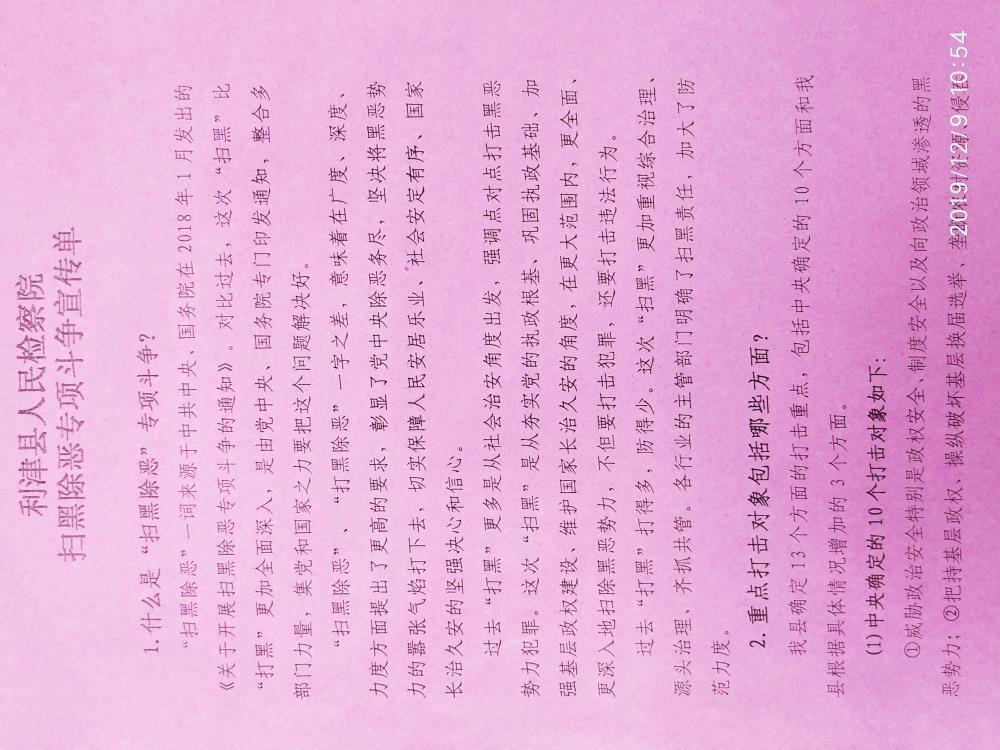 利津县人民检察院
扫黑除恶专项斗争宣传单
1.什么是“扫黑除恶”专项斗争？
“扫黑除恶”一词来源于中共中央、国务院在2018年1月发出的
《关于开展扫黑除恶专项斗争的通知》。对比过去，这次“扫黑”比
“打黑”更加全面深入，是由党中央、国务院专门印发通知，整合多
部门力量，集党和国家之力要把这个问题解决好。
“扫黑除恶”、“打黑除恶”一字之差，意味着在广度、深度、
力度方面提出了更高的要求，彰显了党中央除恶务尽，坚决将黑恶势
力的嚣张气焰打下去，切实保障人民安居乐业、社会安定有序、国家
长治久安的坚强决心和信心。
过去“打黑”更多是从社会治安角度出发，强调点对点打击黑恶
势力犯罪。这次“扫黑”是从夯实党的执政根基、巩固执政基础、加
强基层政权建设、维护国家长治久安的角度，在更大范围内，更全面、
更深入地扫除黑恶势力，不但要打击犯罪，还要打击违法行为。
过去“打黑”打得多，防得少。这次“扫黑”更加重视综合治理、
源头治理、齐抓共管。各行业的主管部门明确了扫黑责任，加大了防
范力度。
2.重点打击对象包括哪些方面？
我县确定13个方面的打击重点，包括中央确定的10个方面和我
县根据具体情况增加的3个方面。
(1)中央确定的10个打击对象如下：
①威胁政治安全特别是政权安全、制度安全以及向政治领域渗透的黑
恶势力；②把持基层政权、操纵破坏基层换届选举、垄
2019/12/9 10:54